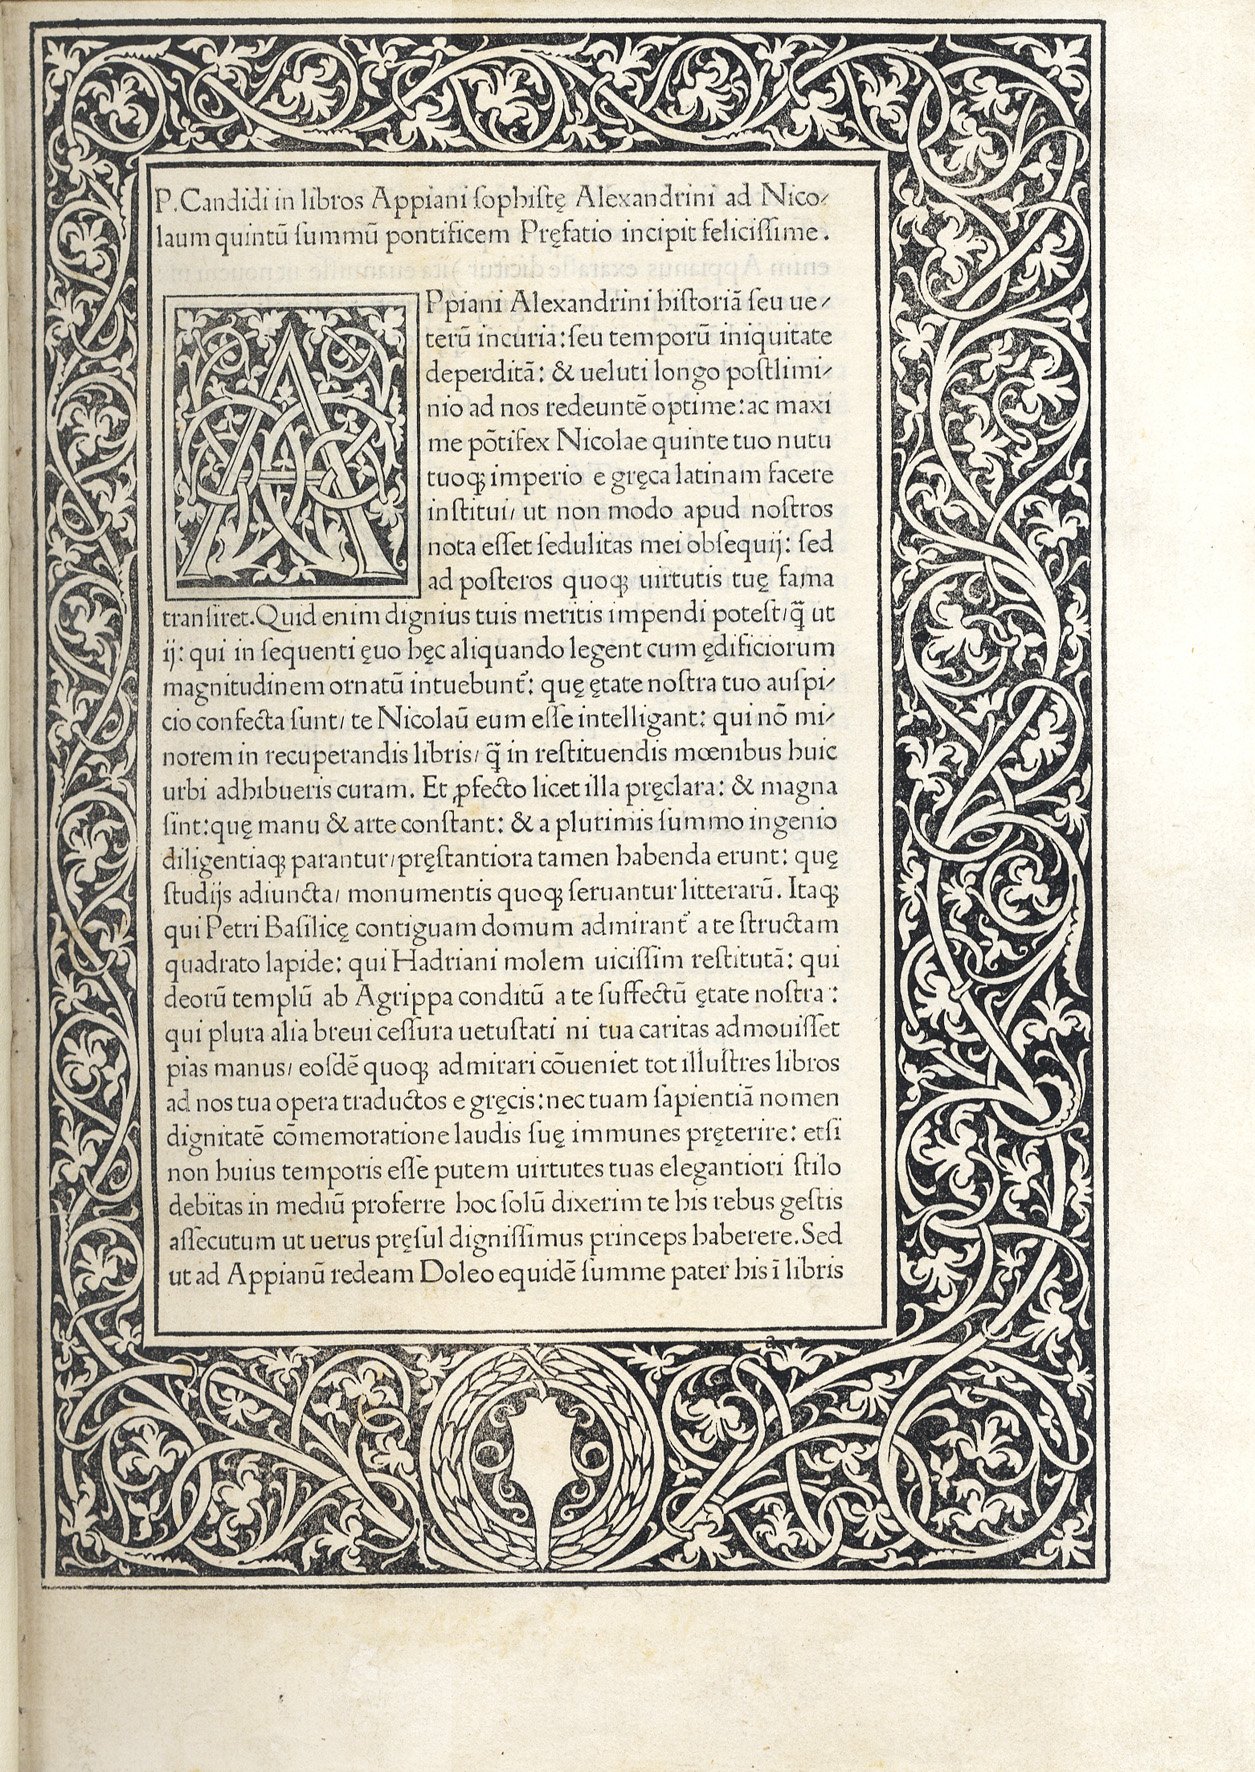 P. Candidi in libros Appiani ſophiſtę Alexandrini ad Nico⸗
laum quintū ſummū pontificem Pręfatio incipit feliciſſime.
APpiani Alexandrini hiſtoriā ſeu ue⸗
terū incuria: ſeu temporū iniquitate
deperditā: & ueluti longo poſtlimi⸗
nio ad nos redeuntē optime: ac maxi
me pōtifex Nicolae quinte tuo nutu
tuoqꝫ imperio e gręca latinam facere
inſtitui/ ut non modo apud noſtros
nota eſſet ſedulitas mei obſequij: ſed
ad poſteros quoqꝫ uirtutis tuę fama
tranſiret. Quid enim dignius tuis meritis impendi poteſt/ q̄ ut
ij: qui in ſequenti ęuo hęc aliquando legent cum ędificiorum
magnitudinem ornatū intuebunt᷑: quę ętate noſtra tuo auſpi⸗
cio confecta ſunt/ te Nicolaū eum eſſe intelligant: qui nō mi⸗
norem in recuperandis libris/ q̄ in reſtituendis mœnibus huic
urbi adhibueris curam. Et ꝓfecto licet illa pręclara: & magna
ſint: quę manu & arte conſtant: & a plurimis ſummo ingenio
diligentiaqꝫ parantur/ pręſtantiora tamen habenda erunt: quę
ſtudijs adiuncta/ monumentis quoqꝫ ſeruantur litterarū. Itaqꝫ
qui Petri Baſilicę contiguam domum admirant᷑ a te ſtructam
quadrato lapide: qui Hadriani molem uiciſſim reſtitutā: qui
deorū templū ab Agrippa conditū a te ſuffectū ętate noſtra:
qui plura alia breui ceſſura uetuſtati ni tua caritas admouiſſet
pias manus/ eoſdē quoqꝫ admirari cōueniet tot illuſtres libros
ad nos tua opera traductos e gręcis: nec tuam ſapientiā nomen
dignitatē cōmemoratione laudis ſuę immunes pręterire: etſi
non huius temporis eſſe putem uirtutes tuas elegantiori ſtilo
debitas in mediū proferre hoc ſolū dixerim te his rebus geſtis
aſſecutum ut uerus pręſul digniſſimus princeps haberere. Sed
ut ad Appianū redeam Doleo equidē ſumme pater his ī libris